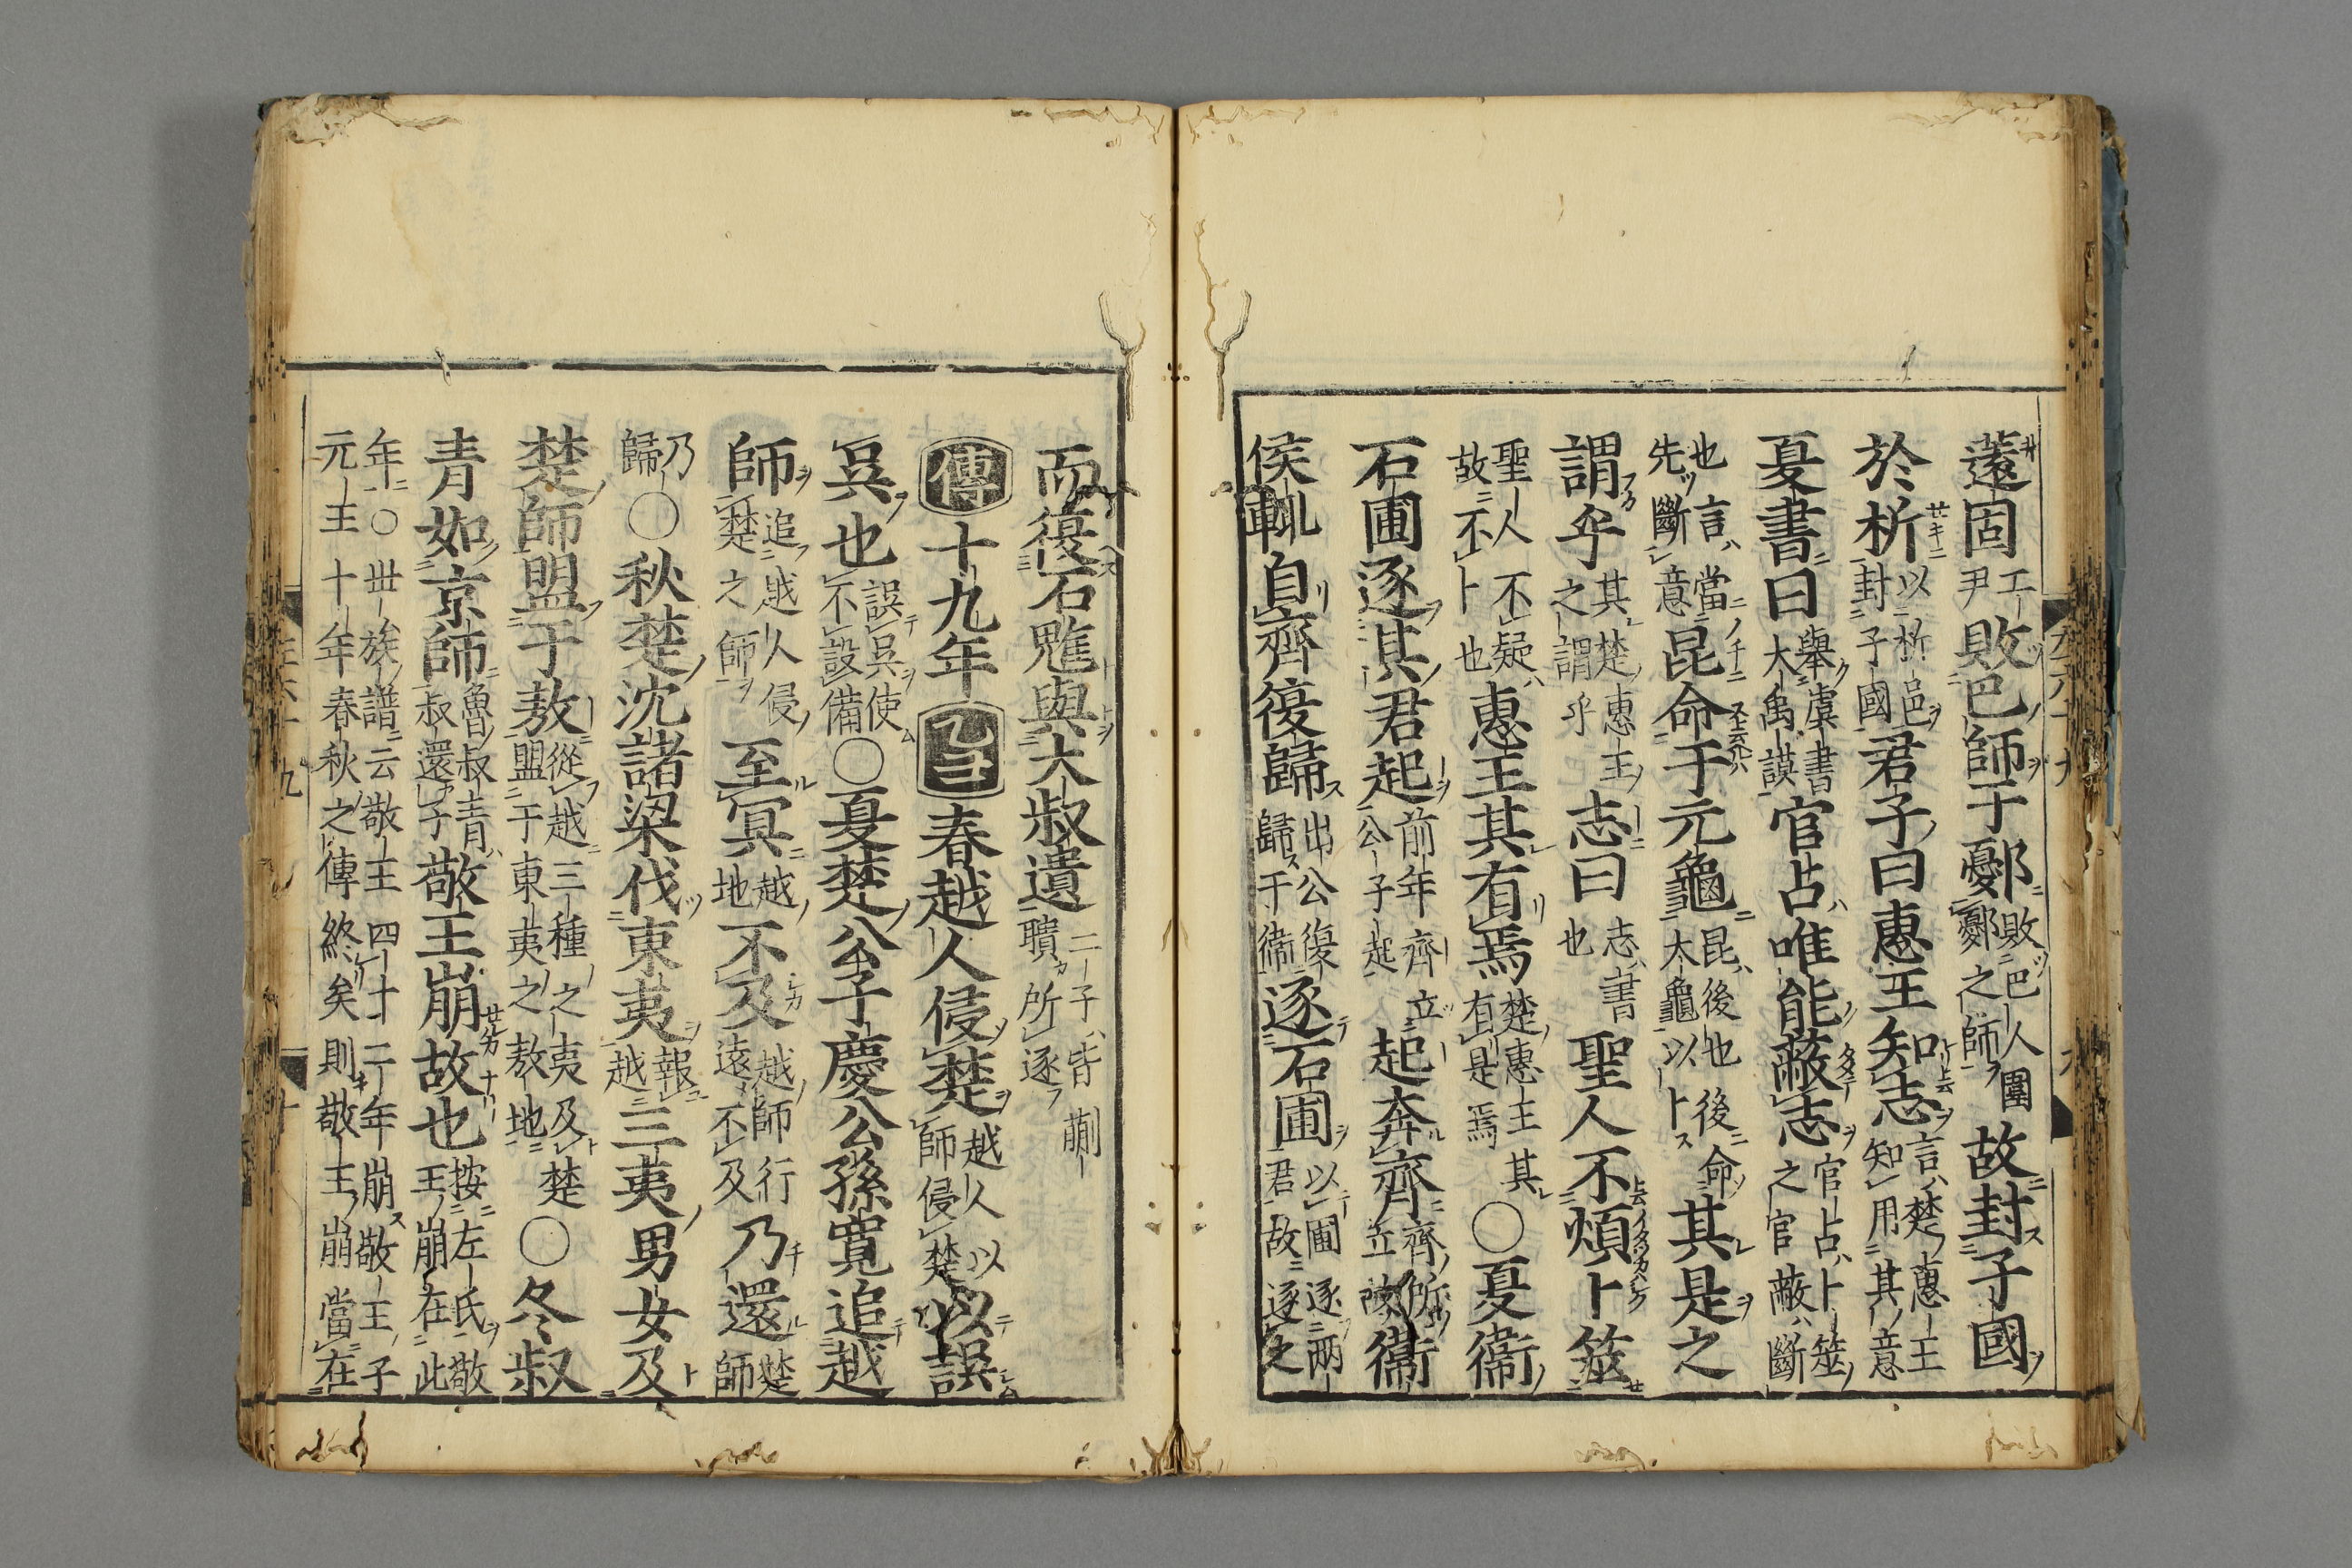 薳固工尹敗巴師于鄾敗巴人圍鄾之師故封子國
於析以析邑封子國君子曰惠王知志言楚惠王知用其意
夏書曰舉虞書大禹謨官占唯能蔽志官占卜筮之官蔽斷
也言當先斷意昆命于元龜昆後也後命大龜以卜其是之
謂乎其楚惠王之謂乎志曰志書也聖人不煩卜筮
聖人不疑故不卜也惠王其有焉楚惠王其有是焉〇夏衞
石圃逐其君起前年齊立公子起起奔齊齊所立故衞
侯輒自齊復歸出公復歸于衞逐石圃以圃逐兩君故逐之
而復石魋與大叔遺二子皆蒯聵所逐
傳十九年乙丑春越人侵楚越人以師侵楚以誤
吳也誤吳使不設備〇夏楚公子慶公孫寬追越
師追越人侵楚之師至冥越地不及越師行遠不及乃還楚師
乃歸〇秋楚沈諸梁伐東夷報越三夷男女及
楚師盟于敖從越三種之夷及楚盟于東夷之敖地〇冬叔
青如京師魯叔青叔還子敬王崩故也按左氏敬王崩在此
年〇丗族譜云敬王四十二年崩敬王子元王十年春秋之傳終矣則敬王崩當在